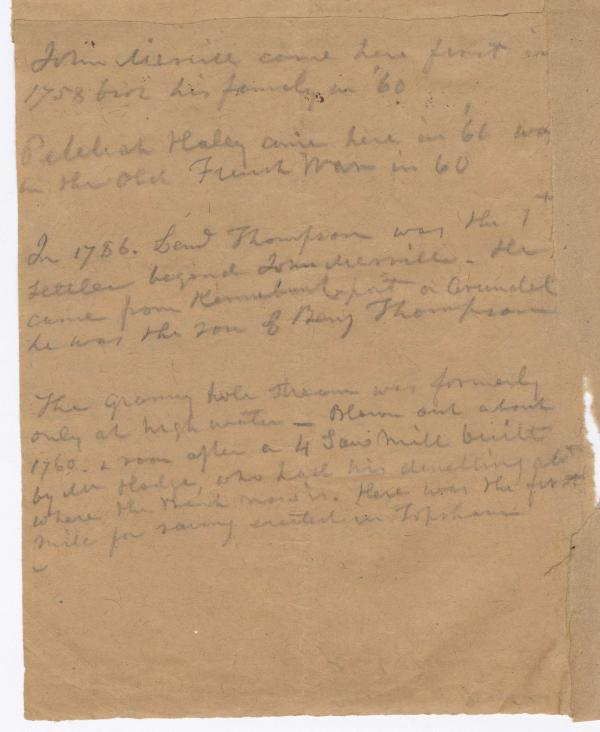 John Merrill came here first in
1758 brot his family in '60
Pelebiah Haley came here in '60 was
in the Old French War in 60
In 1786. Thompson was the 1st
settler beyond John Merrill - He
came from Kennebunkport or Arundel
he was the son of Benj Thompson
The Granny hole stream was formerly
only at high water - Blown out about
1760. & soon after a 4 Saw Mill built
by Mr Hodge, who had his dwelling
where the now is. Here was the first
mill for sawing erected in Topsham